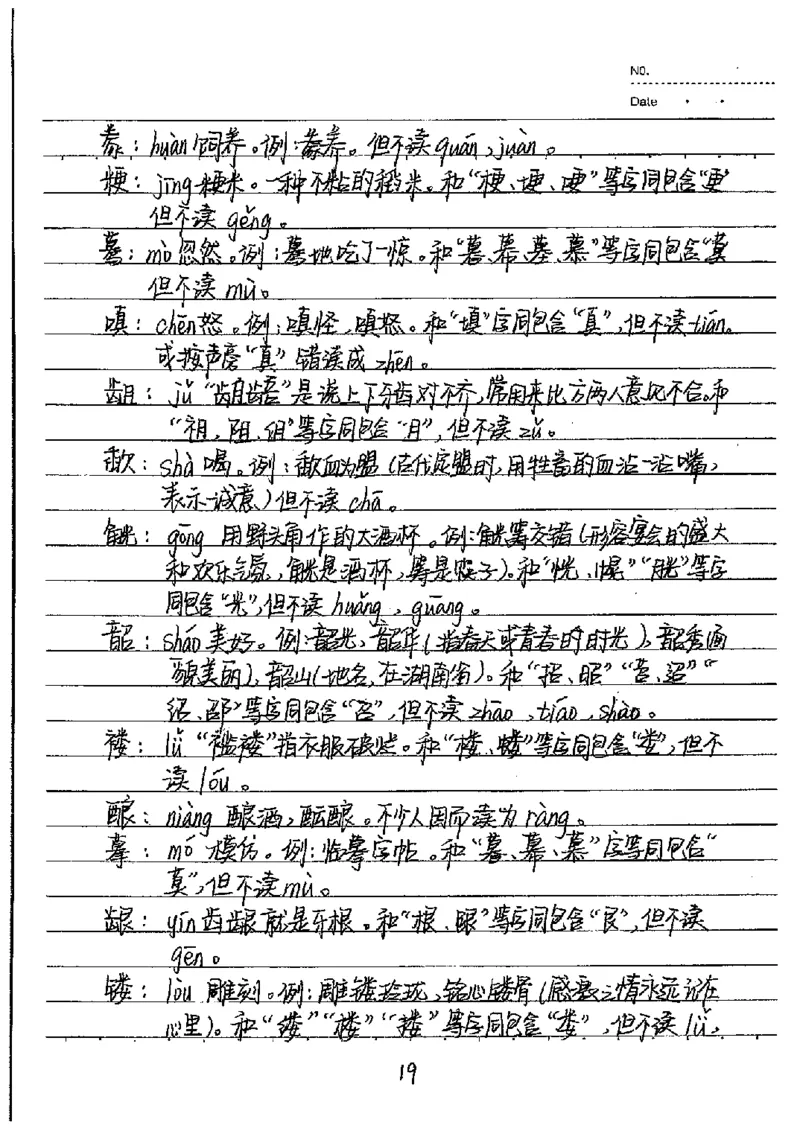 NO.
Date
豢：huàn 饲养。例：豢养。但不读quān、juàn。
粳：jīng 粳米。一种不粘的稻米。和“梗、埂、哽”等字同包含“更”
但不读gěng。
蓦：mò 忽然。例：蓦地吃了一惊。和“暮、幕、墓、慕”等字同包含“莫
但不读mù。
嗔：chēn 怒。例：嗔怪、嗔怒。和“填”字同包含“真”，但不读tián。
或按声旁“真”错读成zhēn。
龃：jǔ “龃龉”是说上下牙齿对不齐，常用来比方两人意见不合。和
“祖、阻、组”等字同包含“且”，但不读zǔ。
歃：shà 喝。例：歃血为盟（古代定盟时，用牲畜的血沾一沾嘴，
表示诚意）但不读chā。
觥：gōng 用野头角作的大酒杯。例：觥筹交错（形容宴会的盛大
和欢乐气氛，觥是酒杯，筹是筷子）。和“恍、幌”“胱”等字
同包含“光”，但不读huǎng，guāng。
韶：sháo 美好。例：韶光，韶华（指春天或青春的时光），韶秀（面
貌美丽），韶山（地名，在湖南省）。和“招、昭”“苕、迢”“
绍、邵”等字同包含“召”，但不读zhāo，tiáo，shào。
褛：lǚ “褴褛”指衣服破烂。和“楼、蝼”等字同包含“娄”，但不
读lóu。
酿：niàng 酿酒，酝酿。不少人因而读为ràng。
摹：mó 模仿。例：临摹字帖。和“暮、幕、慕”字等同包含“
莫”，但不读mù。
龈：yín 齿龈就是牙根。和“根、眼”等字同包含“艮”，但不读
gēn。
镂：lòu 雕刻。例：雕镂玲珑，铭心镂骨（感衷之情永远记在
心里）。和“缕”“楼”“搂”等字同包含“娄”，但不读lǚ，
19